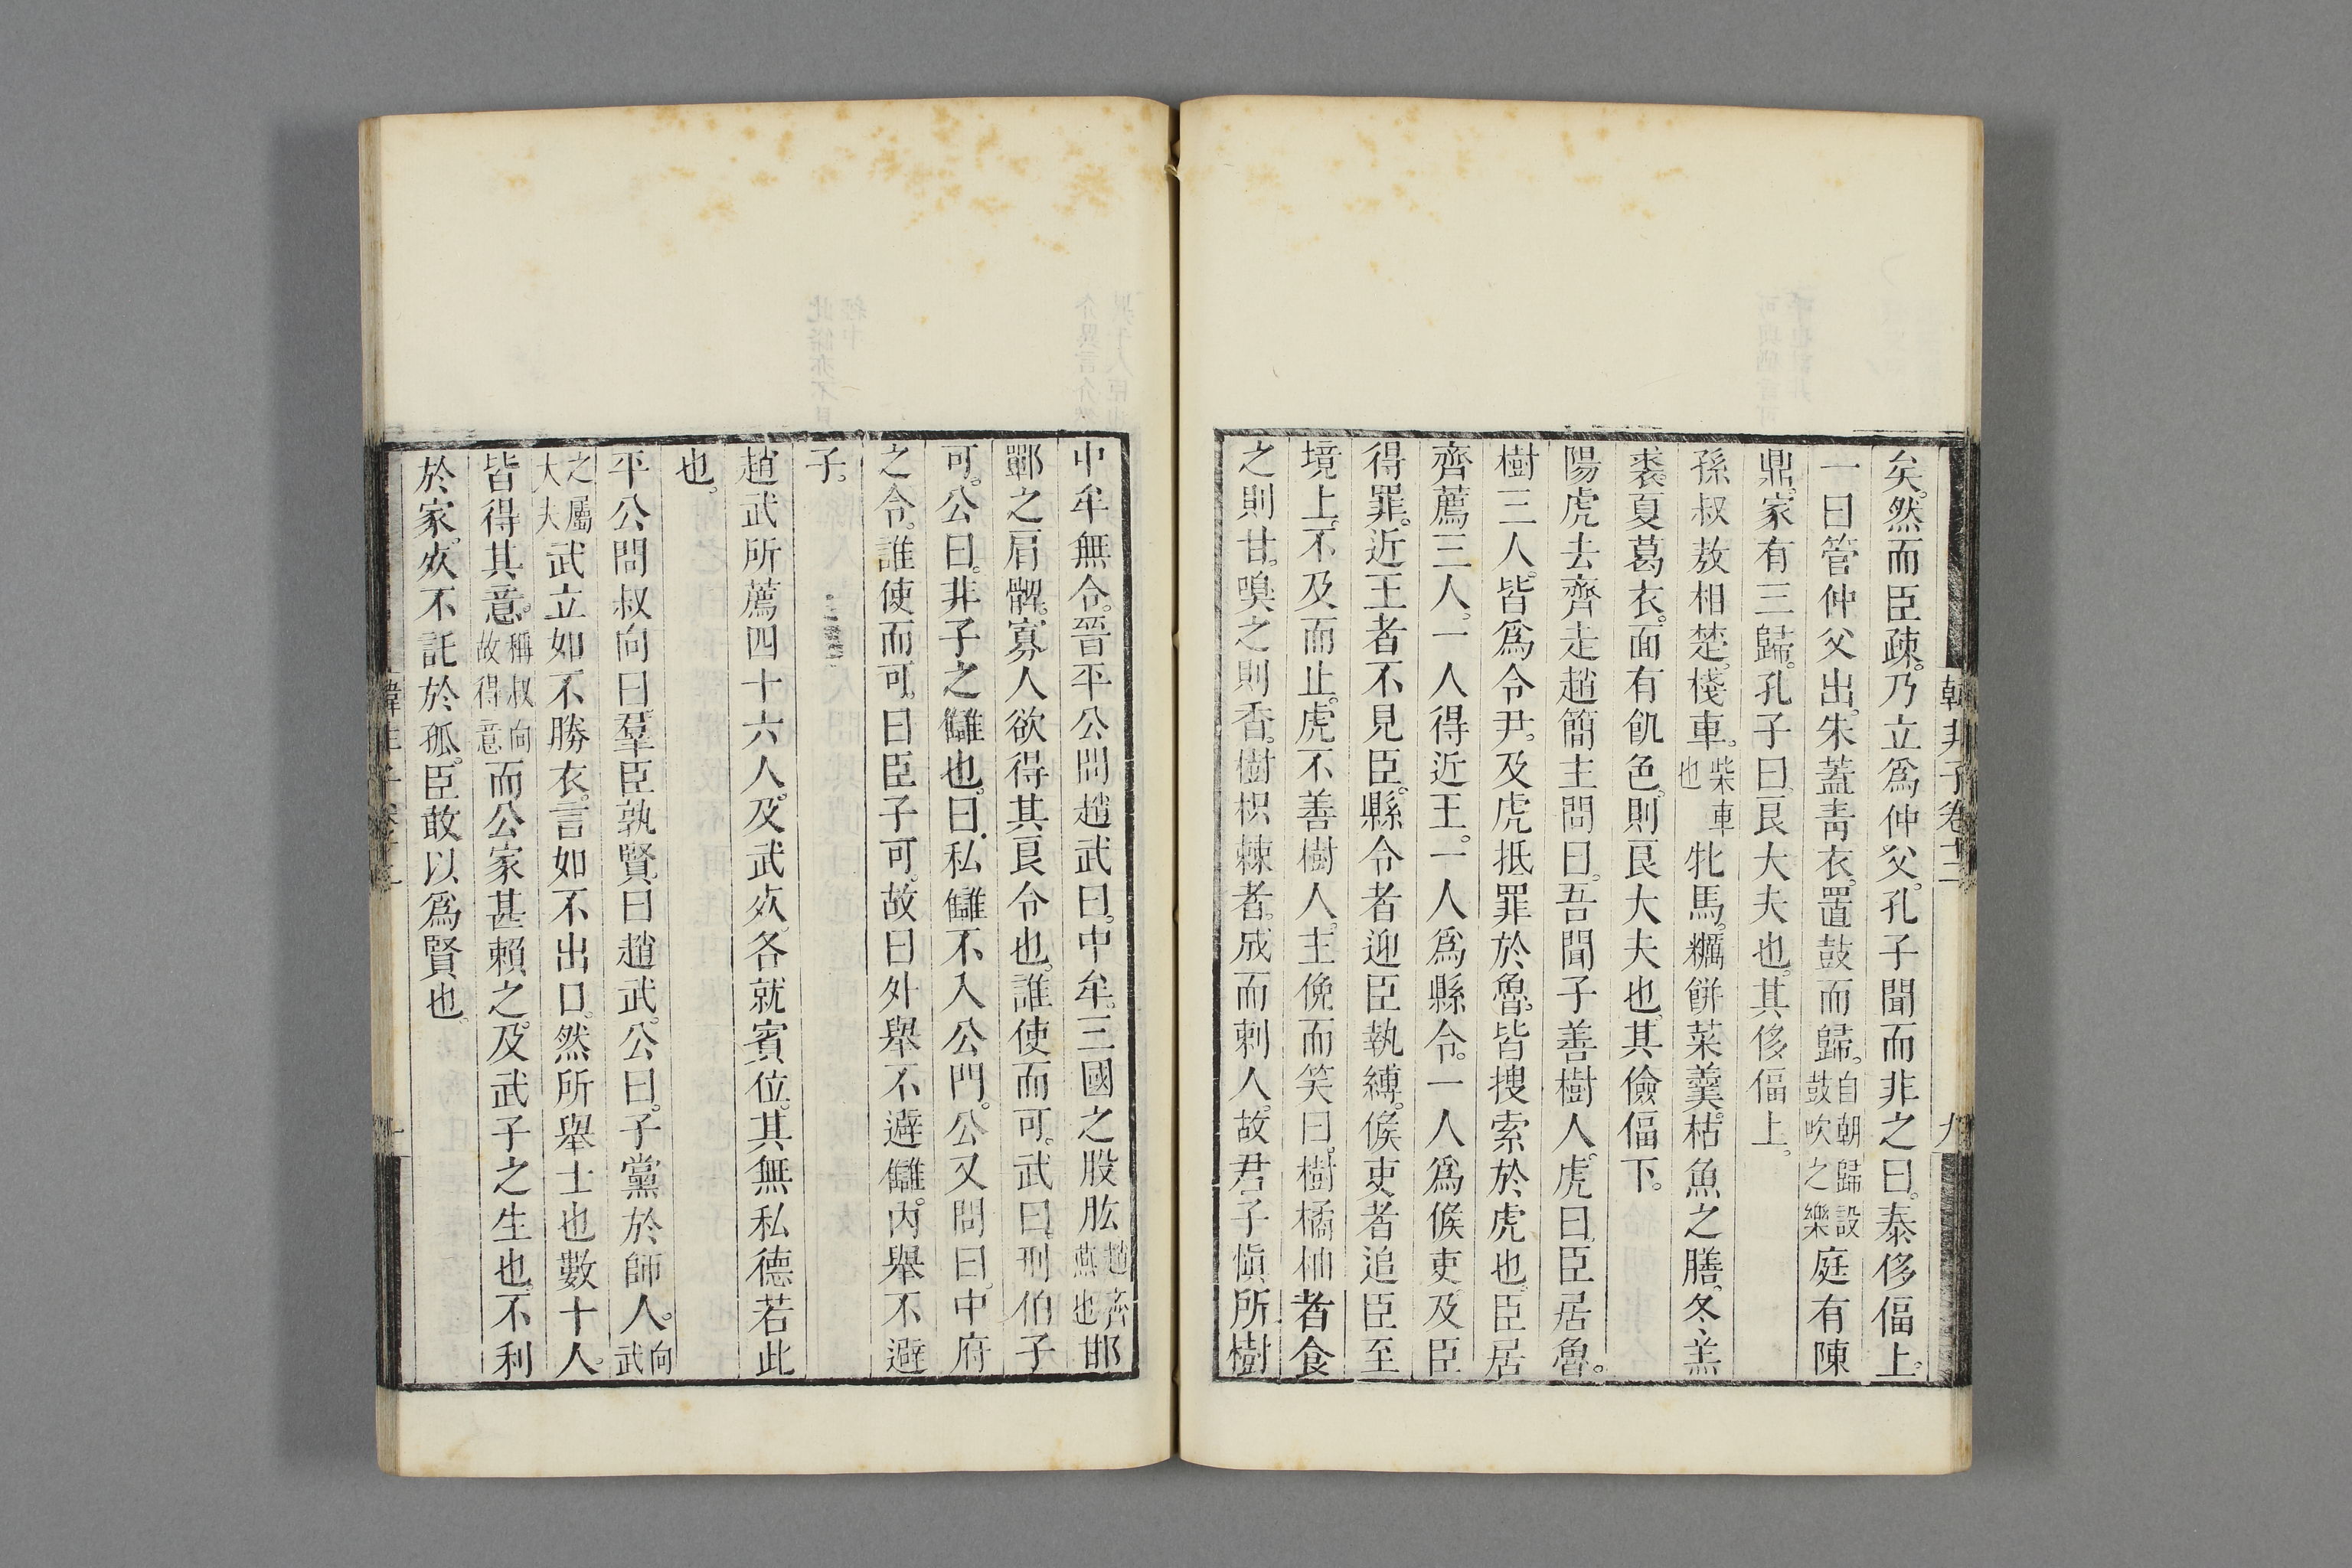 矣。然而臣疎。乃立爲仲父。孔子聞而非之曰。泰侈偪上。
一曰管仲父出。朱蓋靑衣。置鼓而歸。自朝歸設鼓吹之樂庭有陳
鼎。家有三歸。孔子曰。良大夫也。其侈偪上。
孫叔敖相楚。棧車。柴車也牝馬。糲餅菜羹。枯魚之膳。冬羔
裘。夏葛衣。面有飢色。則良大夫也。其儉偪下。
陽虎去齊走趙。簡主問曰。吾聞子善樹人。虎曰。臣居魯。
樹三人。皆爲令尹。及虎抵罪於魯。皆搜索於虎也。臣居
齊薦三人。一人得近王。一人爲縣令。一人爲候吏。及臣
得罪。近王者不見臣。縣令者迎臣執縛。候吏者追臣至
境上。不及而止。虎不善樹人。主俛而笑曰。樹橘柚者食
之則甘。嗅之則香。樹枳棘者。成而刺人。故君子愼所樹
韓非子卷十二
九
中牟無令。晉平公問趙武曰。中牟。三國之股肱趙齊燕也邯
鄲之肩髀。寡人欲得其良令也。誰使而可。武曰。刑伯子
可。公曰。非子之讎也。曰。私讎不入公門。公又問曰。中府
之令。誰使而可。曰臣子可。故曰外舉不避讎。內舉不避
子。
趙武所薦四十六人。及武死。各就賓位。其無私德若此
也。
平公問叔向曰。羣臣孰賢。曰趙武。公曰。子黨於師人。向武
之屬大夫武立如不勝衣。言如不出口。然所舉士也數十人。
皆得其意。稱叔向故得意而公家甚賴之。及武子之生也。不利
於家。死不託於孤。臣敢以爲賢也。